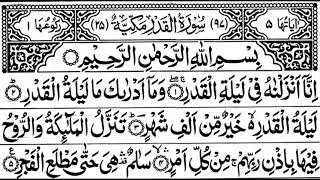 اٰیَاتُهَا ٥ (٩٧) سُوْرَةُ الْقَدْرِ مَكِّيَّةٌ (٢٥) رُكُوْعُهَا ١
بِسْمِ اللّٰهِ الرَّحْمٰنِ الرَّحِيْمِ
اِنَّاۤ اَنْزَلْنٰهُ فِيْ لَيْلَةِ الْقَدْرِ ۚۖ ١ وَمَاۤ اَدْرٰىكَ مَا لَيْلَةُ الْقَدْرِ ؕ ٢
لَيْلَةُ الْقَدْرِ ۙ۬ خَيْرٌ مِّنْ اَلْفِ شَهْرٍ ؕؔ ٣ تَنَزَّلُ الْمَلٰٓىِٕكَةُ وَالرُّوْحُ
فِيْهَا بِاِذْنِ رَبِّهِمْ ۚ مِنْ كُلِّ اَمْرٍ ۙۛ ٤ سَلٰمٌ ۛ۫ هِيَ حَتّٰى مَطْلَعِ الْفَجْرِ ٥